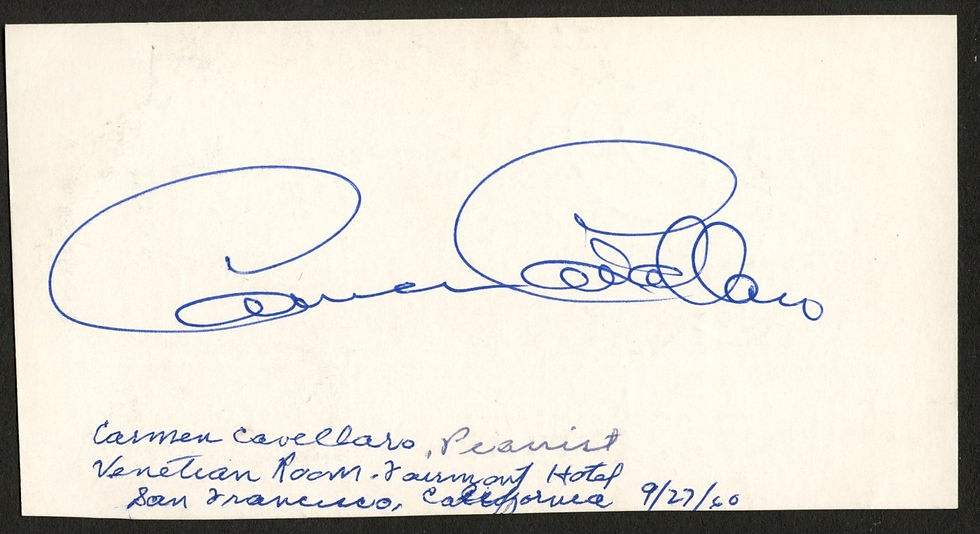 Carmen Cavallaro
Carmen Cavellaro, Peanist
Venetian Room. Fairmont Hotel
San Francisco, California 9/27/60